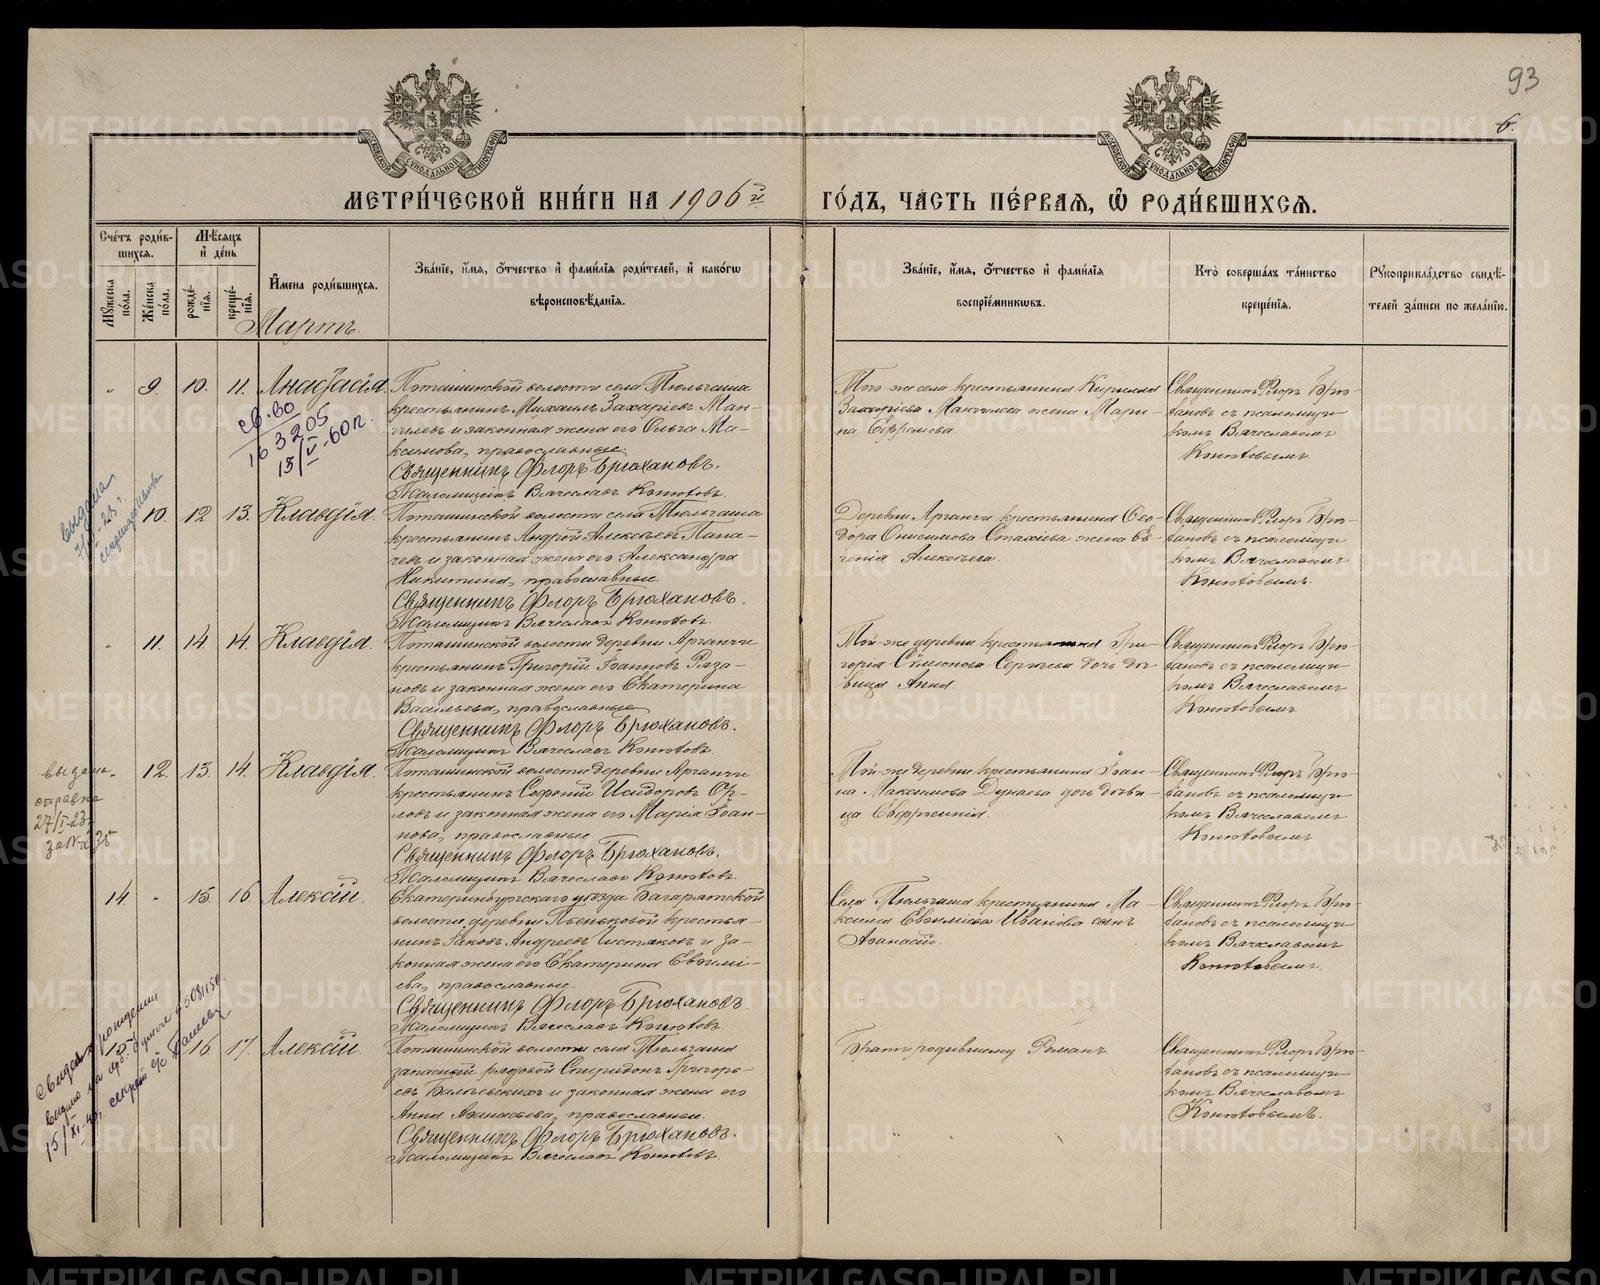 93
6.
МЕТРИ́ЧЕСКОЙ КНИ́ГИ НА 1906й ГО́ДЪ, ЧА́СТЬ ПЕ́РВАЯ, Ѽ РОДИ́ВШИХСЯ.
Сче́тъ роди́в-
шихся.
Мѣ́сяцъ
и де́нь
Мꙋ́жеска по́ла.
Же́нска по́ла.
рожде́-
нїя.
креще́-
нїя.
И́мена роди́вшихся.
Зва́нїе, и́мя, о́тчество и фами́лїя роди́телей, и како́гѡ
вѣроисповѣ́данїя.
Зва́нїе, и́мя, о́тчество и фами́лїя
воспрїе́мниковъ.
Кто̀ соверша́лъ та́инство
креще́нїя.
Рꙋкоприкла́дство свидѣ́-
телей за́писи по жела́нїю.
Мартъ.
" 9. 10. 11. Анастасія
Поташинской волости села Тюльгаша
крестьянинъ Михаилъ Захаріевъ Ман-
гилевъ и законная жена его Ольга Ма-
ксимова, православные.
Священникъ Флоръ Брюхановъ.
Псаломщикъ Вячеславъ Конюховъ.
Того же села крестьянина Кирилла
Захаріева Мангилева жена Мари-
на Ефремова.
Священникъ Флоръ Брю-
хановъ съ псаломщи-
комъ Вячеславомъ
Конюховымъ
св-во
163205
13/V-60 г.
10. 12 13. Клавдія.
Поташинской волости села Тюльгаша
крестьянинъ Андрей Алексѣевъ Папа-
чевъ и законная жена его Александра
Никитина, православные.
Священникъ Флоръ Брюхановъ.
Псаломщикъ Вячеславъ Конюховъ.
Деревни Арганчи крестьянина Ѳео-
дора Онисимова Стахіева жена Ев-
генія Алексѣева.
Священникъ Флоръ Брю-
хановъ съ псаломщи-
комъ Вячеславомъ
Конюховымъ.
выдана
" 11. 14. 14. Клавдія.
Поташинской волости деревни Арганчи
крестьянинъ Григорій Іоанновъ Ряза-
новъ и законная жена его Екатерина
Васильева, православные
Священникъ Флоръ Брюхановъ.
Псаломщикъ Вячеславъ Конюховъ.
Той-же деревни крестьянина Гри-
горія Сѵмеонова Сергѣева дочь дѣ-
вица Анна.
Священникъ Флоръ Брю-
хановъ съ псаломщи-
комъ Вячеславомъ
Конюховымъ
" 12. 13. 14. Клавдія.
Поташинской волости деревни Арганчи
крестьянинъ Софоній Исидоровъ Ор-
ловъ и законная жена его Марія Іоан-
нова, православные.
Священникъ Флоръ Брюхановъ.
Псаломщикъ Вячеславъ Конюховъ.
Той-же деревни крестьянина Іоан-
на Максимова Дунаева дочь дѣви-
ца Евфросинія.
Священникъ Флоръ Брю-
хановъ съ псаломщи-
комъ Вячеславомъ
Конюховымъ
выдана
справка
27/I-23
за № 35
14. " 15. 16. Алексій.
Екатеринбургскаго уѣзда Багарятской
волости, деревни Пьянковой крестья-
нинъ Іаковъ Андреевъ Шестаковъ и за-
конная жена его Екатерина Евѳимі-
ева, православные.
Священникъ Флоръ Брюхановъ.
Псаломщикъ Вячеславъ Конюховъ.
Села Тюльгаша крестьянина Ма-
ксима Евѳиміева Иванова сынъ
Аѳанасій.
Священникъ Флоръ Брю-
хановъ съ псаломщи-
комъ Вячеславомъ
Конюховымъ.
15. 16 17. Алексій.
Поташинской волости села Тюльгаша
запасный рядовой Спиридонъ Григорь-
евъ Балѣевскихъ и законная жена его
Анна Аѳанасьева, православные.
Священникъ Флоръ Брюхановъ.
Псаломщикъ Вячеславъ Конюховъ.
Братъ родившему Романъ.
Священникъ Флоръ Брю-
хановъ съ псаломщи-
комъ Вячеславомъ
Конюховымъ.
METRIKI.GASO-URAL.RU